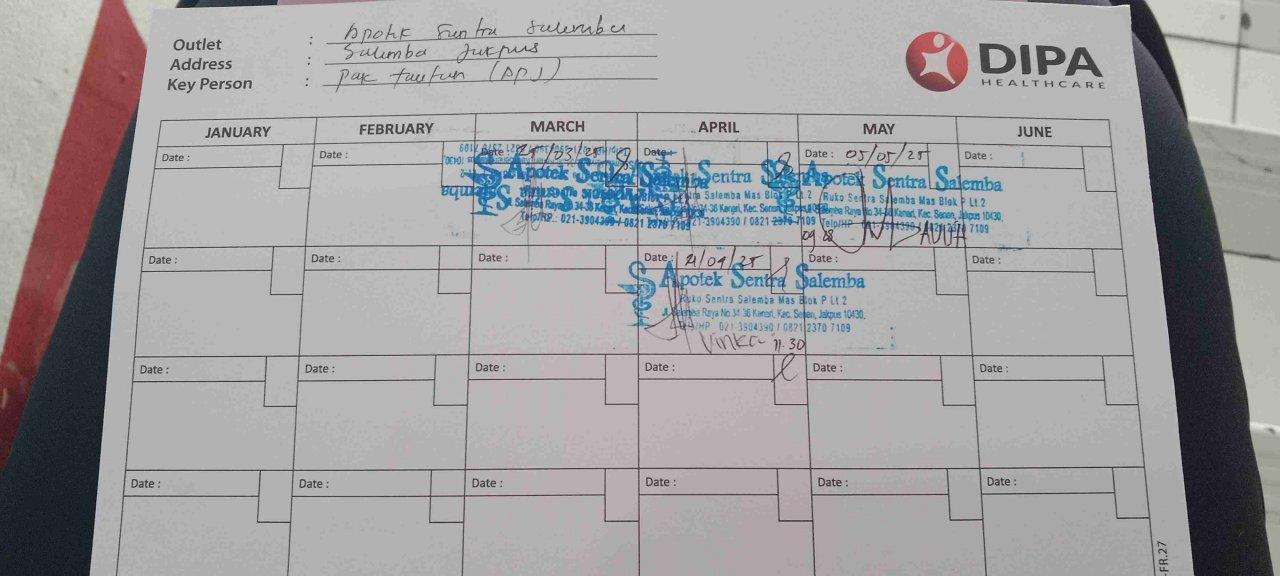 Outlet : Apotik Sentra Salemba
Address : Salemba Jakpus
Key Person : Pak Taufan (APJ)
DIPA
HEALTHCARE
JANUARY FEBRUARY MARCH APRIL MAY JUNE
Date : Date : Date : 25/03/25 Date : Date : 05/05/25 Date :
Apotek Sentra Sentra Apotek Sentra Salemba
Salemba Mas Blok P Lt.2 Ruko Sentra Salemba Mas Blok P Lt.2
Salemba Raya No 34-36 Kenari, Kec. Senen, Jakpus 10430,
Telp/HP : 021-3904390 / 0821 2370 7109 021-3904390 / 0821 2370 7109 Telp/HP : 021-3904390 / 0821 2370 7109
Date : Date : Date : Date : 21/04/25 Date : Date :
Apotek Sentra Salemba
Ruko Sentra Salemba Mas Blok P Lt.2
Jl. Salemba Raya No 34-36 Kenari, Kec. Senen, Jakpus 10430,
Telp/HP 021-3904390 / 0821 2370 7109
Vinka 11.30
Date : Date : Date : Date : Date : Date :
Date : Date : Date : Date : Date : Date :
-FR.27